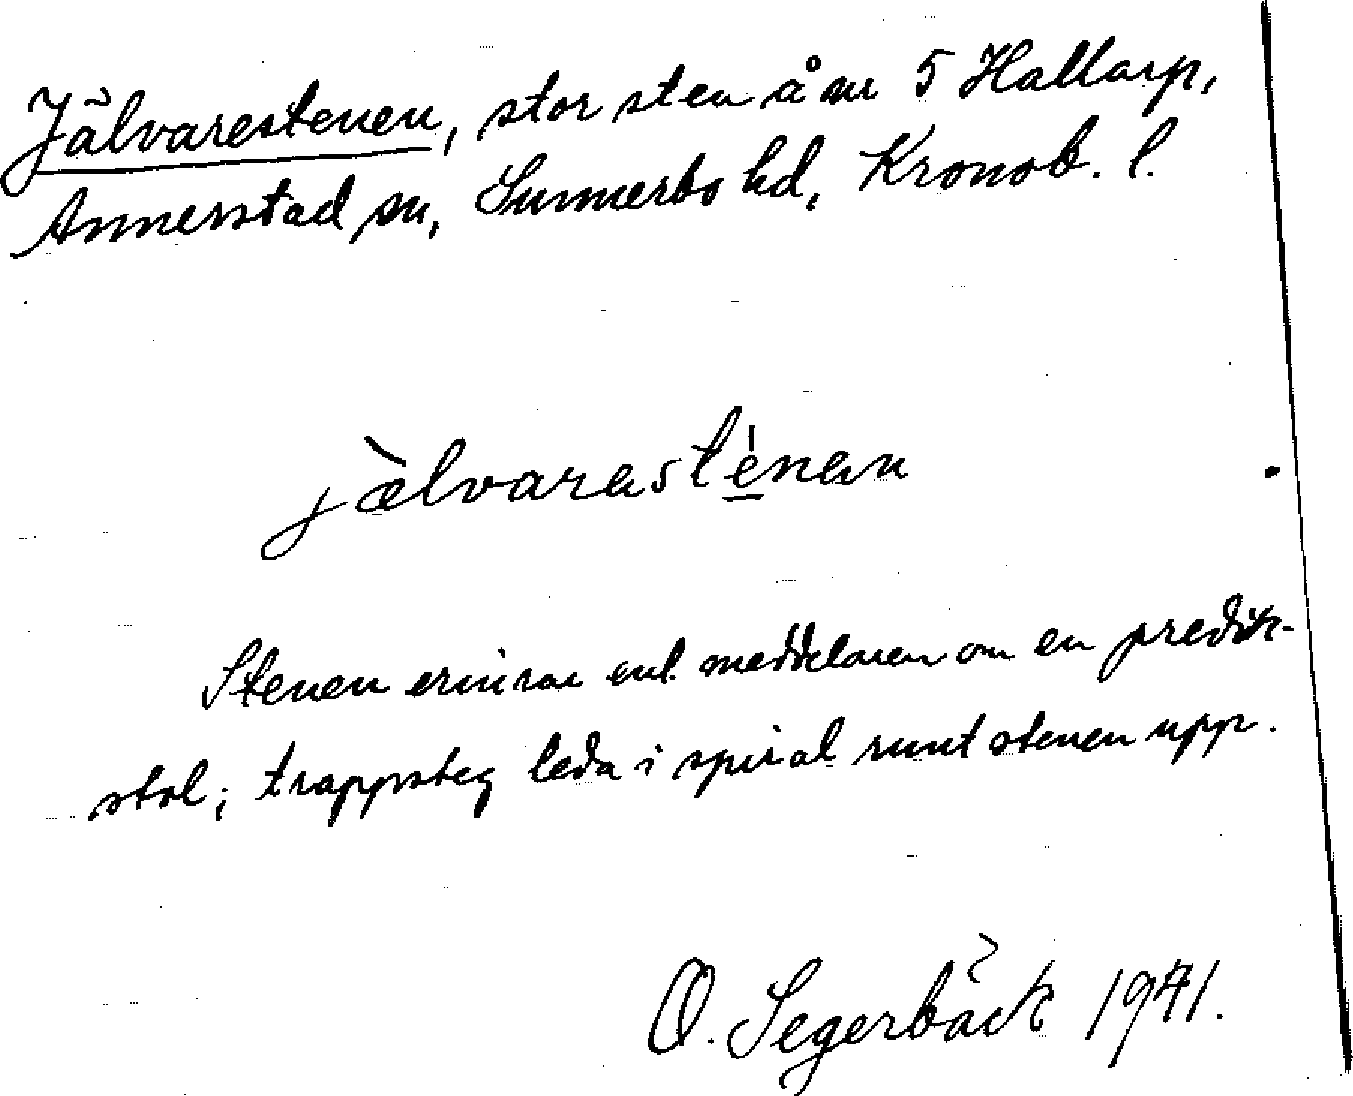 Jälvarestenen, stor sten å nr 5 Hallarp,
Annerstad sn, Sunnerbo hd, Kronob. l.
jæ̀lvarasté̱nan
Stenen erinrar enl. meddelaren om en predik-
stol; trappsteg leda i spiral runt stenen upp.
O. Segerbäck 1941.